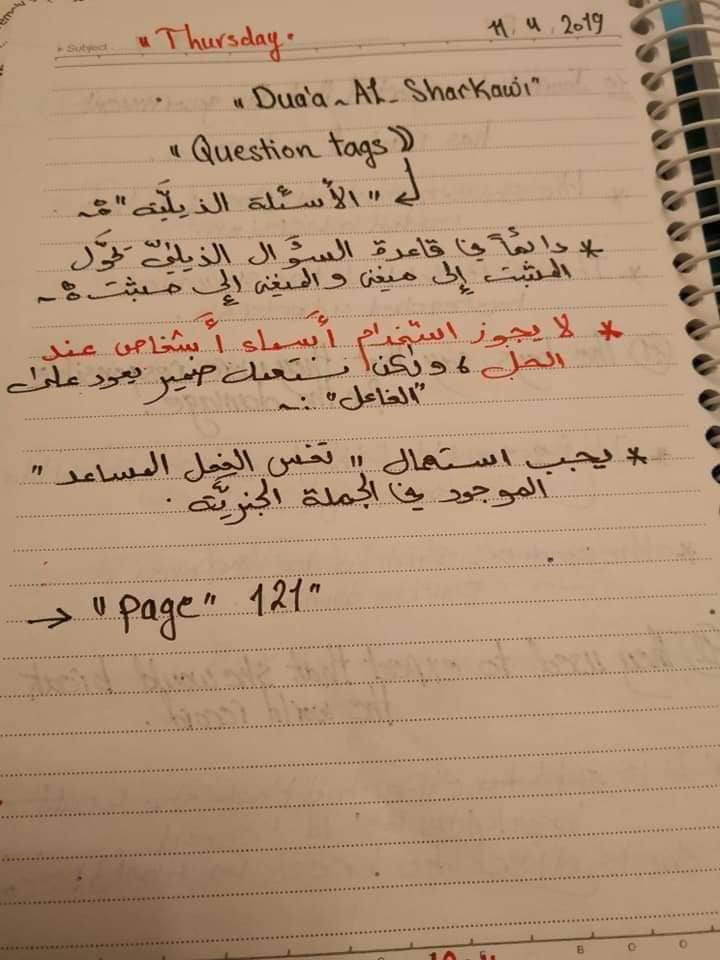 Subject:
" Thursday.
11. 4. 2019
" Dua'a - AL - Sharkawi"
" Question tags »
" الأسئلة الذيليَّة " :~
* دائماً في قاعدة السؤال الذيليّ نحَوَّل
المثبت إلى منفي و المنفي إلى مثبت :~
* لا يجوز استخدام أسماء أشخاص عند
الحل ، ولكن نستعمل ضمير يعود على
"الفاعل" :~
* يجب استعمال " نفس الفعل المساعد "
الموجود في الجملة الخبريَّة .
→ "page" 121"